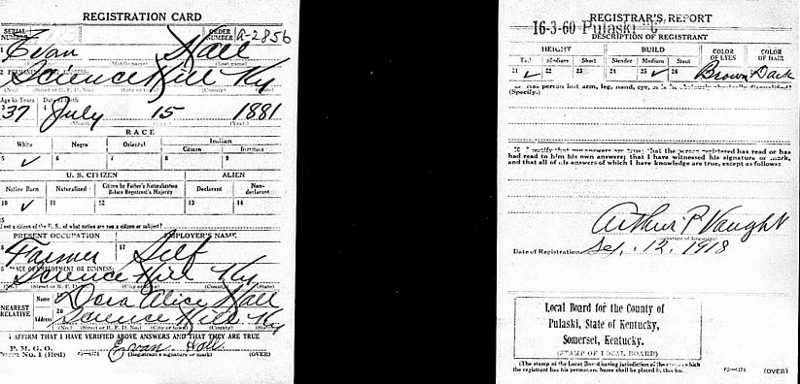 REGISTRATION CARD
SERIAL NUMBER
ORDER NUMBER A-2856
1 Evan Hall
(Middle name) (Last name)
2
Science Hill Ky
(No.) (Street or R. F. D. No.) (City or town) (County) (State)
Age in Years Date of Birth
3 37 4 July 15 1881
(Month) (Year)
RACE
White Negro Oriental Indian
Citizen
5 ✓ 6 7 8 9
U. S. CITIZEN ALIEN
Native Born Naturalized Citizen by Father's Naturalization Before Registrant's Majority Declarant Non-declarant
10 ✓ 11 12 13 14
15
If not a citizen of the U. S., of what nation are you a citizen or subject?
PRESENT OCCUPATION EMPLOYER'S NAME
16 Farmer 17 Self
18 PLACE OF EMPLOYMENT OR BUSINESS
Science Hill Ky
(No.) (Street or R. F. D. No.) (City or town) (County) (State)
NEAREST RELATIVE
Name 19 Dora Alice Hall
Address 20 Science Hill Ky
(No.) (Street or R. F. D. No.) (City or town) (County) (State)
I AFFIRM THAT I HAVE VERIFIED ABOVE ANSWERS AND THAT THEY ARE TRUE
P. M. G. O.
Form No. 1 (Red) Evan Hall
(Registrant's signature or mark) (OVER)
REGISTRAR'S REPORT
16-3-60 Pulaski C
DESCRIPTION OF REGISTRANT
HEIGHT BUILD COLOR OF EYES COLOR OF HAIR
Tall Medium Short Slender Medium Stout
21 ✓ 22 23 24 25 ✓ 26 Brown Dark
29 Has person lost arm, leg, hand, eye, or is he obviously physically disqualified?
(Specify.)
30 I certify that my answers are true; that the person registered has read or has
had read to him his own answers; that I have witnessed his signature or mark,
and that all of his answers of which I have knowledge are true, except as follows:
Arthur P. Vaught
(Signature of Registrar)
Date of Registration Sep. 12, 1918
Local Board for the County of
Pulaski, State of Kentucky,
Somerset, Kentucky.
(STAMP OF LOCAL BOARD)
(The stamp of the Local Board having jurisdiction of the area in which
the registrant has his permanent home shall be placed in this box.)
(OVER)